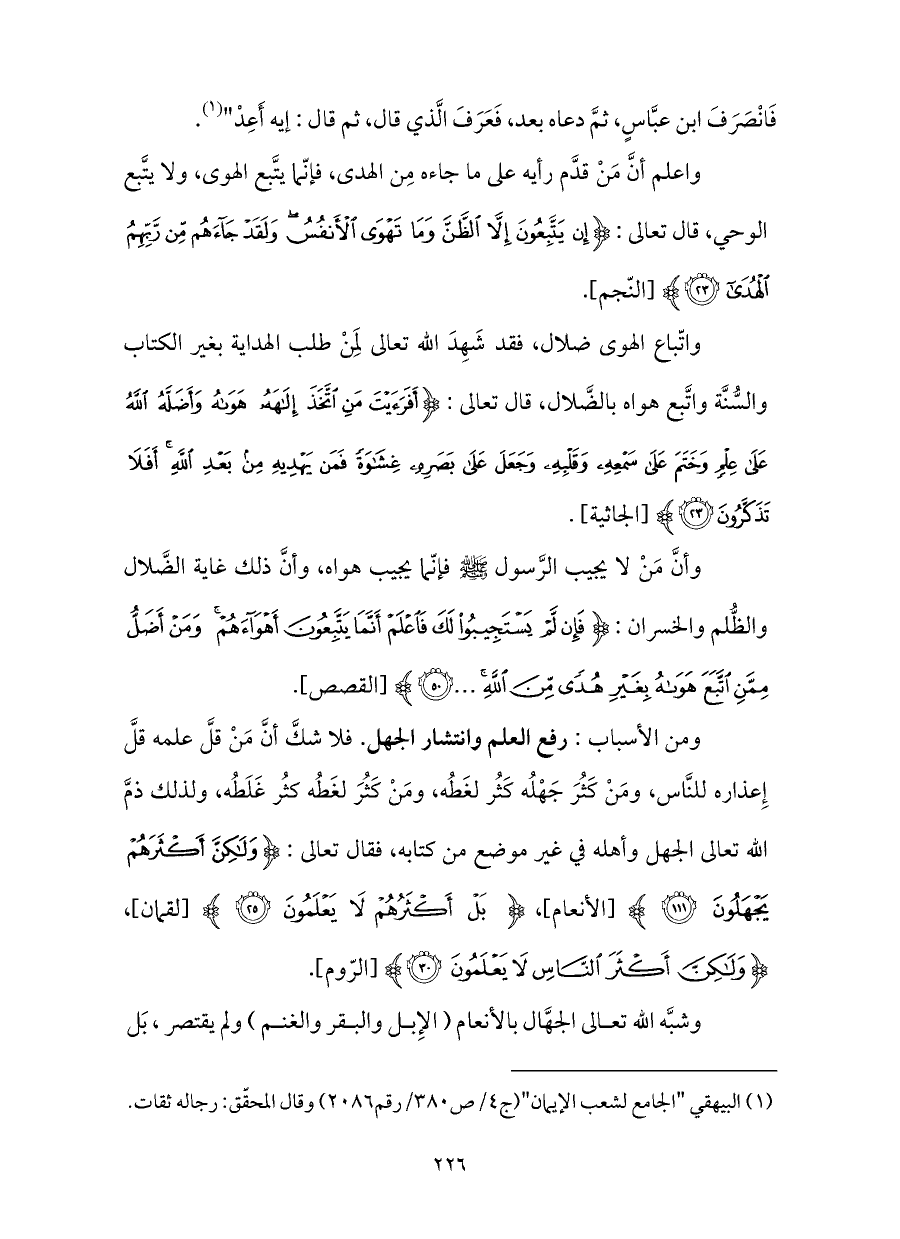 فَانْصَرَفَ ابن عبَّاسٍ، ثمَّ دعاه بعد، فَعَرَفَ الَّذي قال، ثم قال : إيه أَعِدْ"(١).
واعلم أنَّ مَنْ قدَّم رأيه على ما جاءه مِن الهدى، فإنّما يتَّبع الهوى، ولا يتَّبع
الوحي، قال تعالى : ﴿ إِن يَتَّبِعُونَ إِلَّا ٱلظَّنَّ وَمَا تَهْوَى ٱلْأَنفُسُ ۖ وَلَقَدْ جَآءَهُم مِّن رَّبِّهِمُ
ٱلْهُدَىٰٓ ٢٣ ﴾ [النّجم].
واتّباع الهوى ضلال، فقد شَهِدَ الله تعالى لِمَنْ طلب الهداية بغير الكتاب
والسُّنَّة واتَّبع هواه بالضَّلال، قال تعالى : ﴿ أَفَرَءَيْتَ مَنِ ٱتَّخَذَ إِلَٰهَهُۥ هَوَىٰهُ وَأَضَلَّهُ ٱللَّهُ
عَلَىٰ عِلْمٍ وَخَتَمَ عَلَىٰ سَمْعِهِۦ وَقَلْبِهِۦ وَجَعَلَ عَلَىٰ بَصَرِهِۦ غِشَٰوَةً فَمَن يَهْدِيهِ مِنۢ بَعْدِ ٱللَّهِ ۚ أَفَلَا
تَذَكَّرُونَ ٢٣ ﴾ [الجاثية] .
وأنَّ مَنْ لا يجيب الرَّسول ﷺ فإنّما يجيب هواه، وأنَّ ذلك غاية الضَّلال
والظُّلم والخسران : ﴿ فَإِن لَّمْ يَسْتَجِيبُوا۟ لَكَ فَٱعْلَمْ أَنَّمَا يَتَّبِعُونَ أَهْوَآءَهُمْ ۚ وَمَنْ أَضَلُّ
مِمَّنِ ٱتَّبَعَ هَوَىٰهُ بِغَيْرِ هُدًى مِّنَ ٱللَّهِ ۚ ...٥٠ ﴾ [القصص].
ومن الأسباب : رفع العلم وانتشار الجهل. فلا شكَّ أنَّ مَنْ قلَّ علمه قلَّ
إعذاره للنَّاس، ومَنْ كَثُرَ جَهْلُه كَثُر لغَطُه، ومَنْ كَثُرَ لغَطُه كثُر غَلَطُه، ولذلك ذمَّ
الله تعالى الجهل وأهله في غير موضع من كتابه، فقال تعالى : ﴿ وَلَٰكِنَّ أَكْثَرَهُمْ
يَجْهَلُونَ ١١١ ﴾ [الأنعام]، ﴿ بَلْ أَكْثَرُهُمْ لَا يَعْلَمُونَ ٢٥ ﴾ [لقمان]،
﴿ وَلَٰكِنَّ أَكْثَرَ ٱلنَّاسِ لَا يَعْلَمُونَ ٣٠ ﴾ [الرّوم].
وشبَّه الله تعالى الجهَّال بالأنعام ( الإبل والبقر والغنم ) ولم يقتصر ، بَل
(١) البيهقي "الجامع لشعب الإيمان"(ج٤/ ص٣٨٠/ رقم٢٠٨٦) وقال المحقّق: رجاله ثقات.
٢٢٦